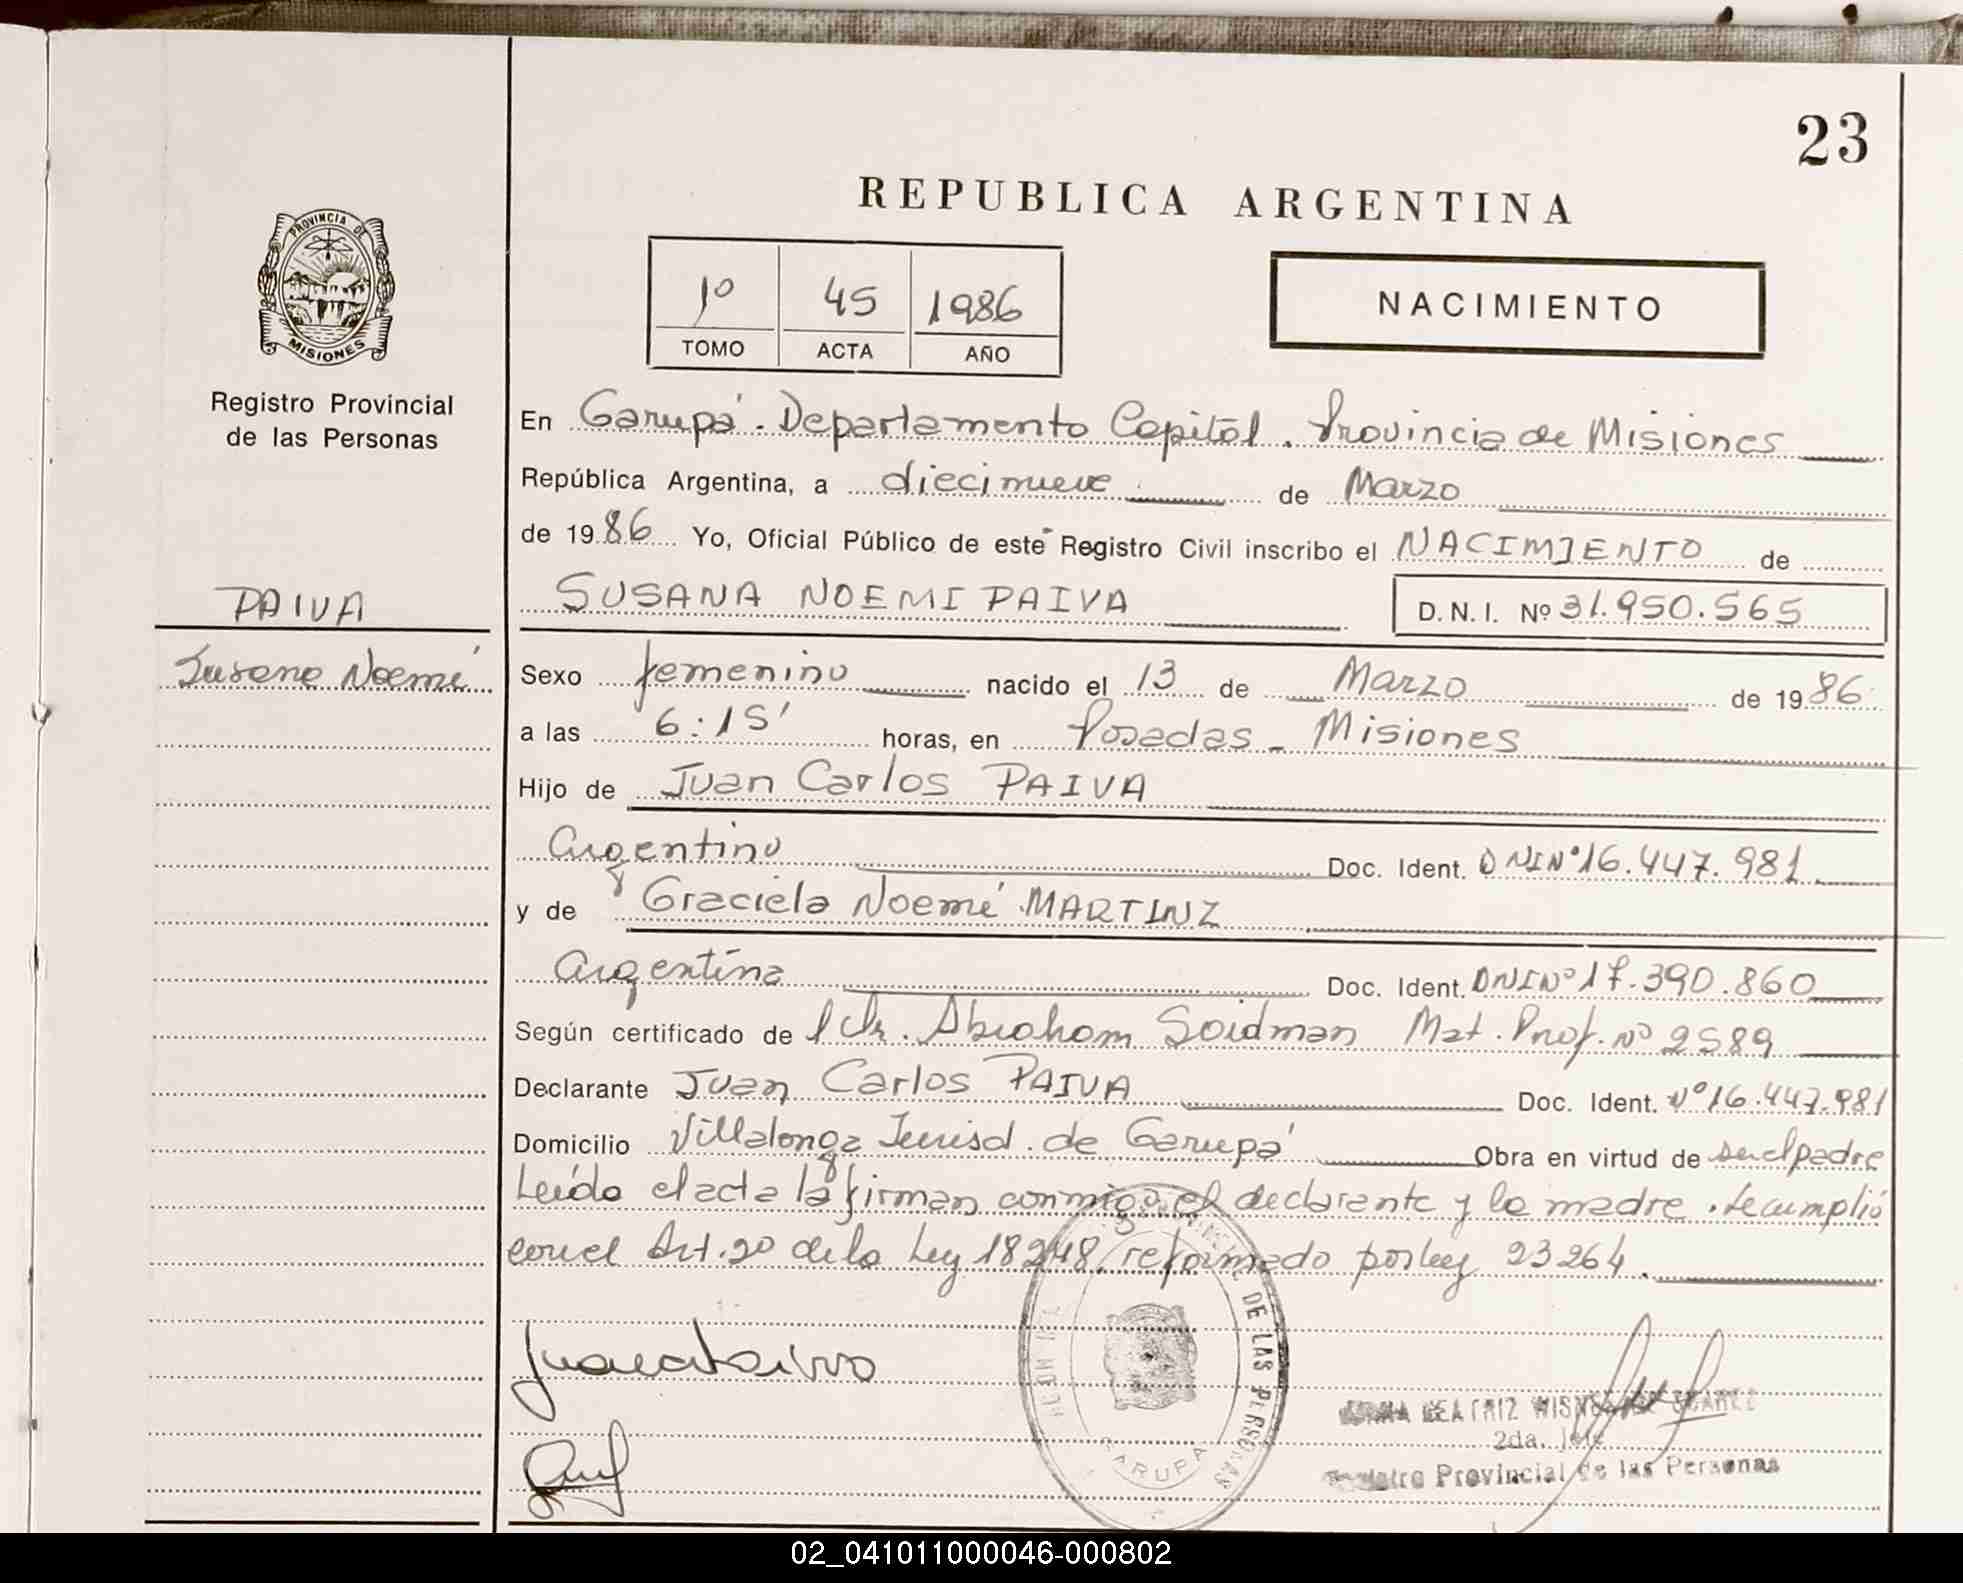 23
REPUBLICA ARGENTINA
PROVINCIA DE
MISIONES
1º 45 1986
TOMO ACTA AÑO
NACIMIENTO
Registro Provincial
de las Personas
En Garupá. Departamento Capital. Provincia de Misiones
República Argentina, a diecinueve de Marzo
de 1986 Yo, Oficial Público de este Registro Civil inscribo el NACIMIENTO de
PAIVA
SUSANA NOEMI PAIVA D.N.I. Nº 31.950.565
Susana Noemí
Sexo femenino nacido el 13 de Marzo de 1986
a las 6:15' horas, en Posadas - Misiones
Hijo de Juan Carlos PAIVA
Argentino Doc. Ident. DNI Nº 16.447.981
y de Graciela Noemí MARTINZ
Argentina Doc. Ident. DNI Nº 17.390.860
Según certificado de Abraham Soidman Mat. Prof. Nº 2589
Declarante Juan Carlos PAIVA Doc. Ident. Nº 16.447.981
Domicilio Villalonga Jurisd. de Garupá Obra en virtud de ser el padre
Leída el acta la firman conmigo el declarante y la madre. Se cumplió
con el Art. 2º de la Ley 18248, reformado por ley 23264.
DE LAS PERSONAS
GARUPA
BEATRIZ
2da. Jefe
Registro Provincial de las Personas
02_041011000046-000802